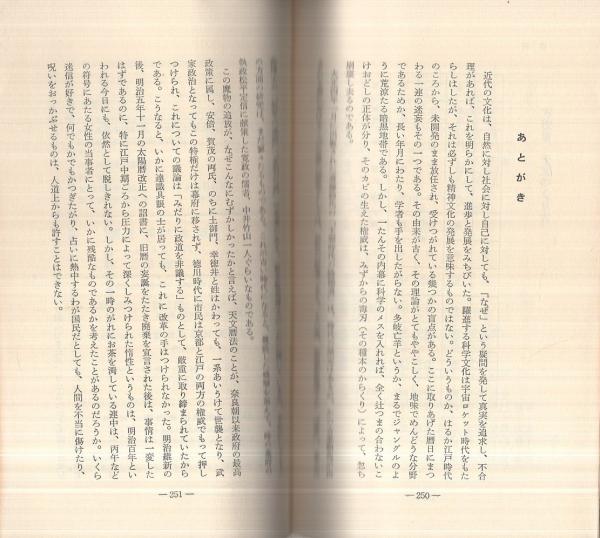 あとがき
近代の文化は、自然に対し社会に対し自己に対しても、「なぜ」という疑問を発して真実を追求し、不合
理があれば、これを明らかにして、進歩と発展をみちびいた。躍進する科学文化は宇宙ロケット時代をもた
らしはしたが、それは必ずしも精神文化の発展を意味するものではない。どういうものか、はるか江戸時代
のころから、未開発のまま放任され、受けつがれている幾つかの盲点がある。ここに取りあげた暦日にまつ
わる一連の迷妄もその一つである。その由来が古く、その理論がとてもややこしく、地味でめんどうな分野
であるためか、長い年月にわたり、学者も手を出したがらない。多岐亡羊というか、まるでジャングルのよ
うに荒涼たる暗黒地帯である。しかし、一たんその内幕に科学のメスを入れれば、全く辻つまの合わないこ
けおどしの正体が分り、そのカビの生えた権威は、みずからの毒刃（その種本のからくり）によって、忽ち
崩壊し去るのである。
―250―
執政松平定信に献策した寛政の儒者、中井竹山一人ぐらいなものである。
この魔物の追放が、なぜこんなにむずかしかったかと言えば、天文暦法のことが、奈良朝以来政府の最高
政策に属し、安倍、賀茂の両氏、のちに土御門、幸徳井と姓はかわっても、一系あいうけて世襲となり、武
家政治となってもこの特権だけは幕府に移されず、徳川時代に市民は京都と江戸の両方の権威でもって押し
つけられ、これについての議論は「みだりに政道を非議する」ものとして、厳重に取り締まられていたから
である。こうなると、いかに達識具眼の士が居っても、これに改革の手はつけられなかった。明治維新の
後、明治五年十一月の太陽暦改正への詔書に、旧暦の妄誕をたたき廃棄を宣言された後は、事情は一変した
はずであるのに、特に江戸中期ごろから圧力によって深くしみつけられた惰性というものは、明治百年とい
われる今日にも、依然として脱しきれない。しかし、その一時のがれにお茶を濁している連中は、丙午など
の符号にあたる女性の当事者にとって、いかに残酷なものであるかを考えたことがあるのだろうか。いくら
迷信が好きで、何でもかでもかつぎたがり、占いに熱中するわが国民だとしても、人間を不当に傷けたり、
呪いをおっかぶせるものは、人道上からも許すことはできない。
―251―